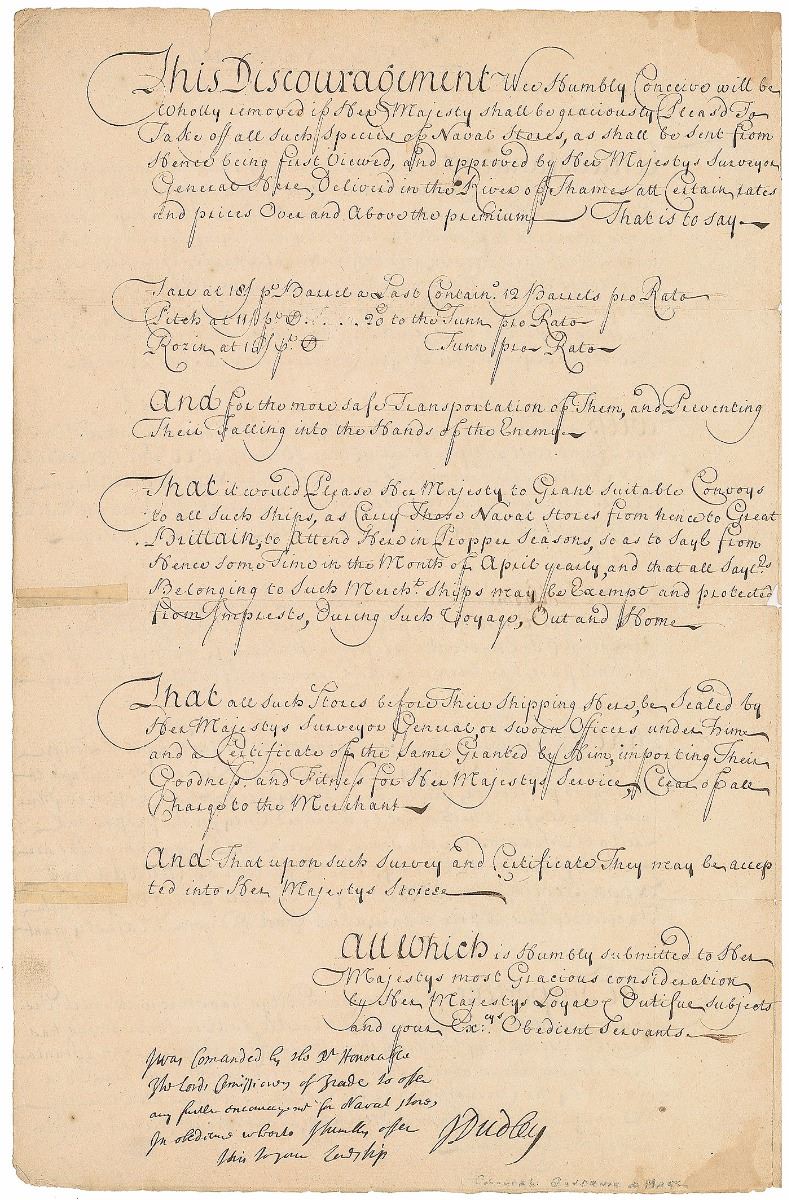 This Discouragement Wee Humbly Conceive will be
Wholly removed if Her Majesty shall be graciously Pleas'd To
Take off all such species of Naval Stores, as shall be sent from
Hence being first Viewed, and approved by Her Majestys Surveyor
General Here, Deliverd in the River of Thames att Certain rates
and prices Over and Above the premium That is to say
Tarr at 18/ pr Barrel a Last Contain.g 12 Barrels pro Rato
Pitch at 11/ pr C 20 to the Tunn pro Rato
Rozin at 10/ pr C Tunn pro Rato
And for the more safe Transportation of Them, and Preventing
Their Falling into the Hands of the Enemy
That it would Please Her Majesty to Grant suitable Convoys
to all such ships, as Carry These Naval Stores from hence to Great
Brittain, to Attend Here in Propper Seasons, so as to Sayl from
Hence some Time in the Month of April yearly, and that all Saylrs
Belonging to such Mercht ships may be Exempt and protected
from Imprests, During such Voyage, Out and Home
That all such Stores before Their Shipping Here, be Sealed by
Her Majestys Surveyor General, or sworn Officers under him
and a Certificate of the same Granted by Him, importing Their
Goodness and Fitness for Her Majestys Service, Clear of all
Charge to the Merchant
And That upon such Survey and Certificate They may be accep
ted into Her Majestys Stores
All Which is Humbly submitted to Her
Majestys most Gracious consideration
by Her Majestys Loyal & Dutifue subjects
and your Ex:cys Obedient Servants
I was Comanded by the Rt Honorable
The Lords Comissioners of Trade to offer
any further encouragmt for Naval stores
In obedience whereto I humbly offer
this to your Lordship
J Dudley